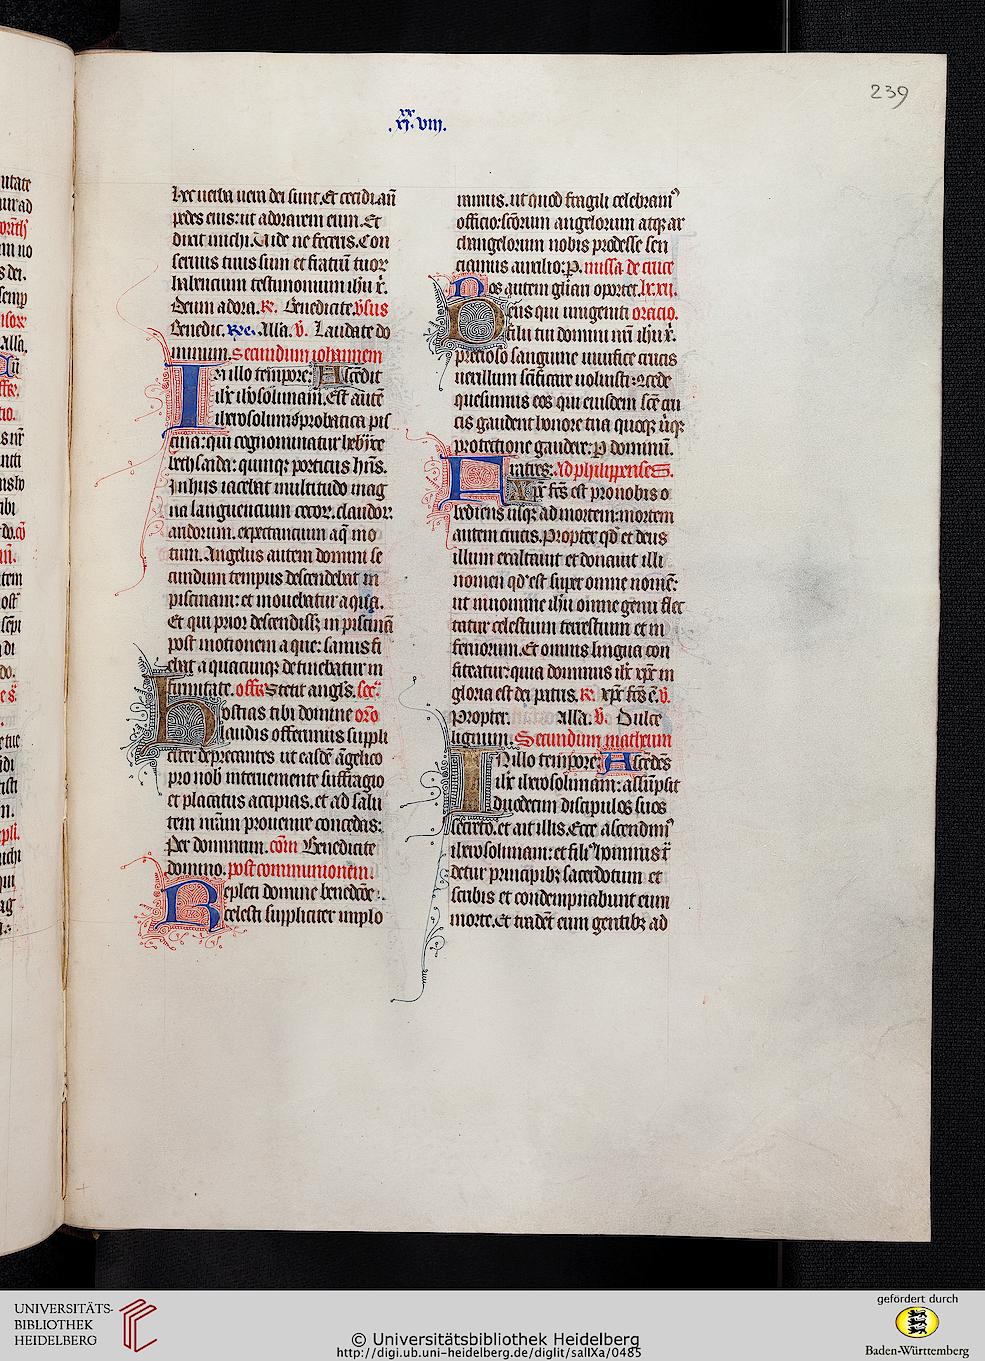 239
xx
.xi.viii.
hec uerba uera dei sunt. Et cecidi añ
pedes eius: ut adorarem eum. Et
dixit michi. Vide ne feceris. Con
seruus tuus sum et fratrū tuoꝝ
habencium testimonium ihū x̄.
Deum adora. R. Benedicite. v̄sus
Benedic. Alla. V̄. Laudate do
minum. Secundum iohannem
In illo tempore: Ascēdit
ihc iherosolimam. Est autē
iherosolimis probatica pis
cina: qui cognominatur hebraice
bethsaida: quinqꝫ porticus hñs.
In hiis iacebat multitudo mag
na languencium cecoꝝ. claudoꝝ.
aridorum. expectancium aq̄ mo
tum. Angelus autem domini se
cundum tempus descendebat in
piscinam: et mouebatur aqua.
Et qui prior descendissꝫ in piscinā
post motionem aque: sanus fi
ebat a quacunqꝫ detinebatur in
firmitate. offꝫ Stetit angls. sec̄.
hostias tibi domine or̄o
laudis offerimus suppli
citer deprecantes ut easdē āgelico
pro nob interueniente suffragio
et placatus accipias. et ad salu
tem n̄ram prouenire concedas:
Per dominum. cōm Benedicite
domino. post communionem.
Repleti domine benedc̄oe
celesti suppliciter implo
mimus. ut quod fragili celebramꝰ
officio: sc̄orum angelorum atqꝫ ar
changelorum nobis prodesse sen
ciamus auxilio: P. missa de cruce
Nos autem gl̄iari oportet. lxxii.
Deus qui unigeniti oracio.
filii tui domini nr̄i ihū x̄.
precioso sanguine uiuifice crucis
uexillum sc̄ificare uoluisti: 9cede
quesumus eos qui eiusdem sc̄e cru
cis gaudent honore tua quoqꝫ ubiqꝫ
protectione gaudere: P dominū.
Fratres: Ad philippenses.
Xpc fc̄s est pro nobis o
bediens usqꝫ ad mortem: mortem
autem crucis. Propter qd et deus
illum exaltauit et donauit illi
nomen qd est super omne nomē:
ut in nomine ihū omne genu flec
tatur celestium terrestrium et in
fernorum. Et omnis lingua con
fiteatur: quia dominus ihc xpc in
gloria est dei patris. R. xpc fc̄s ē. V̄.
Propter. Alla. V̄. Dulce
lignum. Secundum matheum
In illo tempore: Ascēdēs
ihc iherosolimam: assūpsit
duodecim discipulos suos
secreto. et ait illis. Ecce ascendimꝰ
iherosolimam: et filiꝰ hominis t̄
detur principibꝫ sacerdotum et
scribis et condempnabunt eum
morte. Et tradēt eum gentibꝫ ad
UNIVERSITÄTS-
BIBLIOTHEK
HEIDELBERG
© Universitätsbibliothek Heidelberg
http://digi.ub.uni-heidelberg.de/diglit/salIXa/0485
gefördert durch
Baden-Württemberg